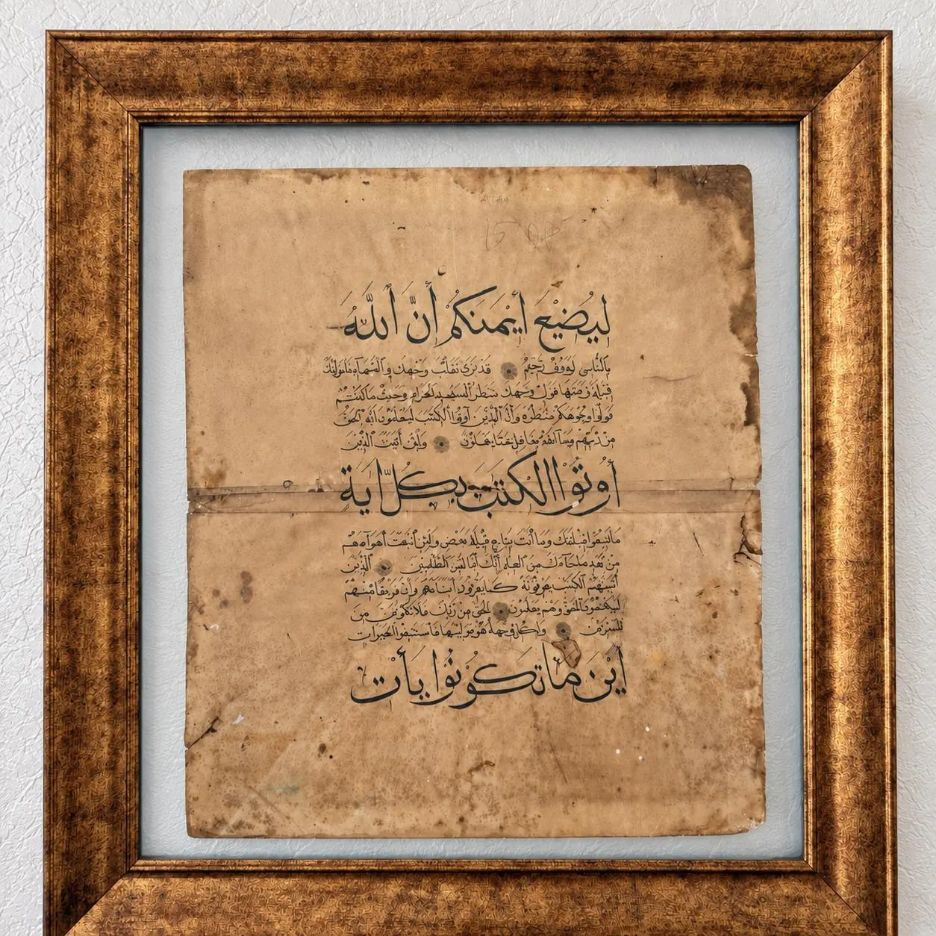 ليُضيعَ أيمنكُمْ أنَّ اللَّهَ
بالنَّاسِ لرؤوفٌ رَّحيمٌ قد نرى تقلّب وجهك في السماء فلنولينك
قبلة ترضىها فولّ وجهك شطر المسجد الحرام وحيث ما كنتم
فولّوا وجوهكم شطره وأنّ الذين أوتوا الكتب ليعلمون أنه الحق
من ربهم وما الله بغافل عمّا يعملون ولئن أتيت الذين
أُوتُوا الكتبَ بِكُلِّ ءايةٍ
ما تبعوا قبلتك وما أنت بتابع قبلتهم وما بعضهم بتابع قبلة بعض ولئن اتبعت أهواءهم
من بعد ما جاءك من العلم إنّك إذا لمن الظلمين الذين
ءاتينهم الكتب يعرفونه كما يعرفون أبناءهم وإن فريقا منهم
ليكتمون الحق وهم يعلمون الحق من ربك فلا تكونن من
الممترين ولكل وجهة هو موليها فاستبقوا الخيرات
أين ما تكونُوا يأت